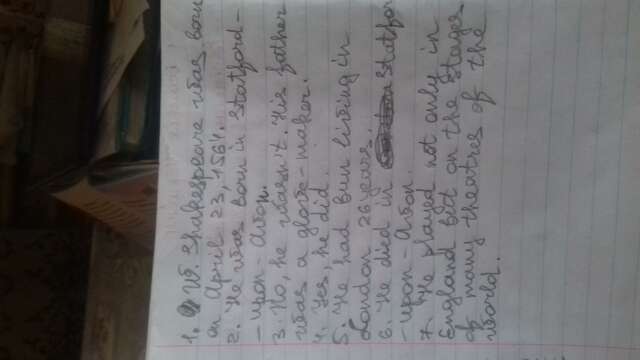 1. W. Shakespeare was born
on April 23, 1564.
2. He was born in Statford-
-upon-Avon.
3. No, he wasn't. His father
was a glove-maker.
4. Yes, he did.
5. He had been living in
London 26 years.
6. He died in Statford
-upon-Avon.
7. He played not only in
England but on the stages
of many theatres of the
world.